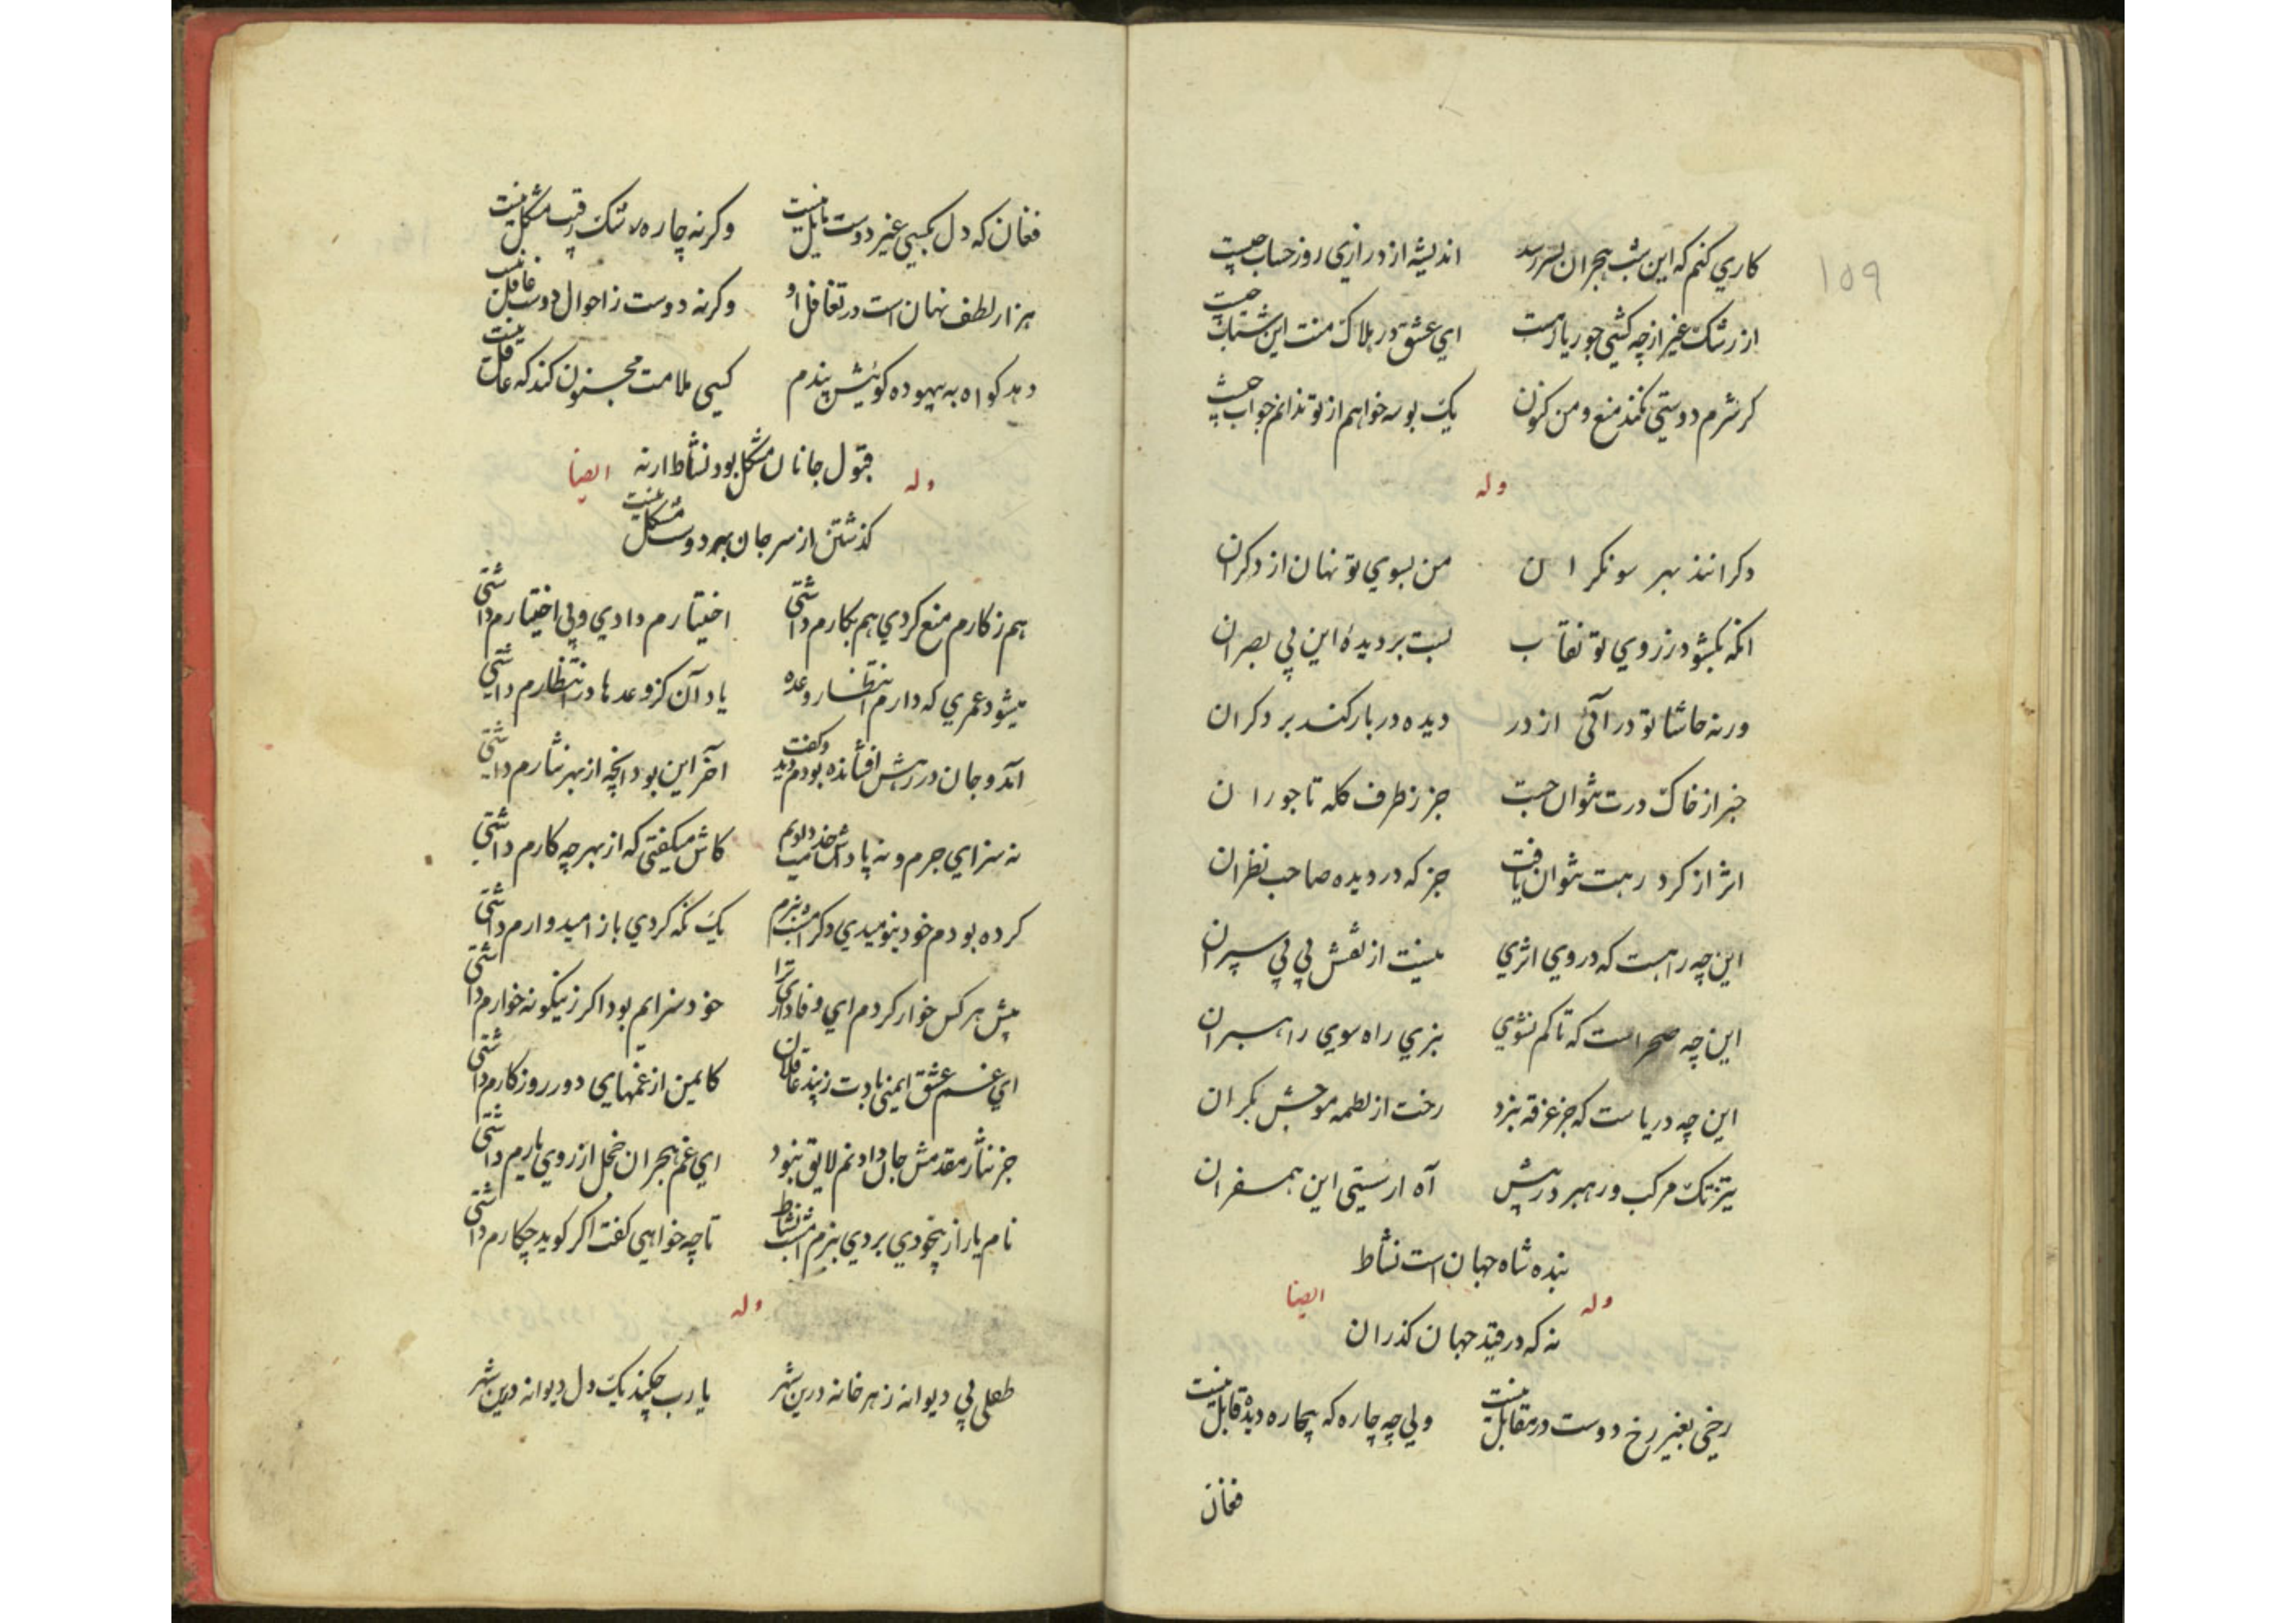 ١٥٩
کاري کنم که این شب هجران بسر رسد اندیشه از درازي روز حساب چیست
از رشک غیر از چه کشي جور یار هست اي عشق در هلاک منت این شتاب چیست
کر شرم دوستي نکند منع و من کنون یک بوسه خواهم از تو ندانم جواب چیست
وله
دکرانند بهر سو نکران من بسوي تو نهان از دکران
انکه بکشود ز روي تو نقاب بست بر دیدۀ این بي بصران
ورنه حاشا تو در آئي از در دیده در باز کند بر دکران
خبر از خاک درت نتوان جست جز ز طرف کله تاجوران
اثر از کرد رهت نتوان یافت جز که در دیده صاحب نظران
این چه راهست که در وي اثري نیست از نقش پي پي سپران
این چه صحراست که تا کم نشوي نبري راه سوي راهبران
این چه دریاست که جز غرقه نبرد رخت از لطمه موجش بکران
تیزتک مرکب و رهبر در پیش آه از سستي این همسفران
بنده شاه جهان است نشاط
وله ایضا
نه که در قید جهان کذران
رخي بغیر رخ دوست در مقابل نیست ولي چه چاره که بیچاره دیده قابل نیست
فغان
فغان که دل بکسي غیر دوست مایل نیست وکرنه چاره رشک رقیب مشکل نیست
هزار لطف نهان است در تغافل او وکرنه دوست ز احوال دوست غافل نیست
دهد کواه به بیهوده کوئیش پندم کسي ملامت مجنون کند که عاقل نیست
قبول جانان مشکل بود نشاط ارنه
وله ایضا
کذشتن از سر جان بهر دوست مشکل نیست
هم ز کارم منع کردي هم بکارم داشتي اختیارم دادي و بي اختیارم داشتي
میشود عمري که دارم انتظار وعده یاد آن کز وعدها در انتظارم داشتي
آمد و جان در رهش افشانده بودم دید و کفت آخر این بود انچه از بهر نثارم داشتي
نه سزاي جرم و نه پاداش خدمت کاش میکفتي که از بهر چه کارم داشتي
کرده بودم خو بنومیدي دکر امشب ببزم یک نکه کردي باز امیدوارم داشتي
پیش هر کس خوار کردم اي وفاداري ترا خود سزایم بود اکر زینکونه خوارم داشتي
اي غم عشق ایمني بادت ز پند عاقلان کایمن از غمهاي دور روزکارم داشتي
جز نثار مقدمش جان دادنم لایق نبود اي غم هجران خجل از روي یارم داشتي
نام یار از بیخودي بردي ببزم امشب نشاط تا چه خواهي کفت اکر کوید چکارم داشتي
وله
طفلي پي دیوانه ز هر خانه درین شهر یا رب چکند یک دل دیوانه درین شهر